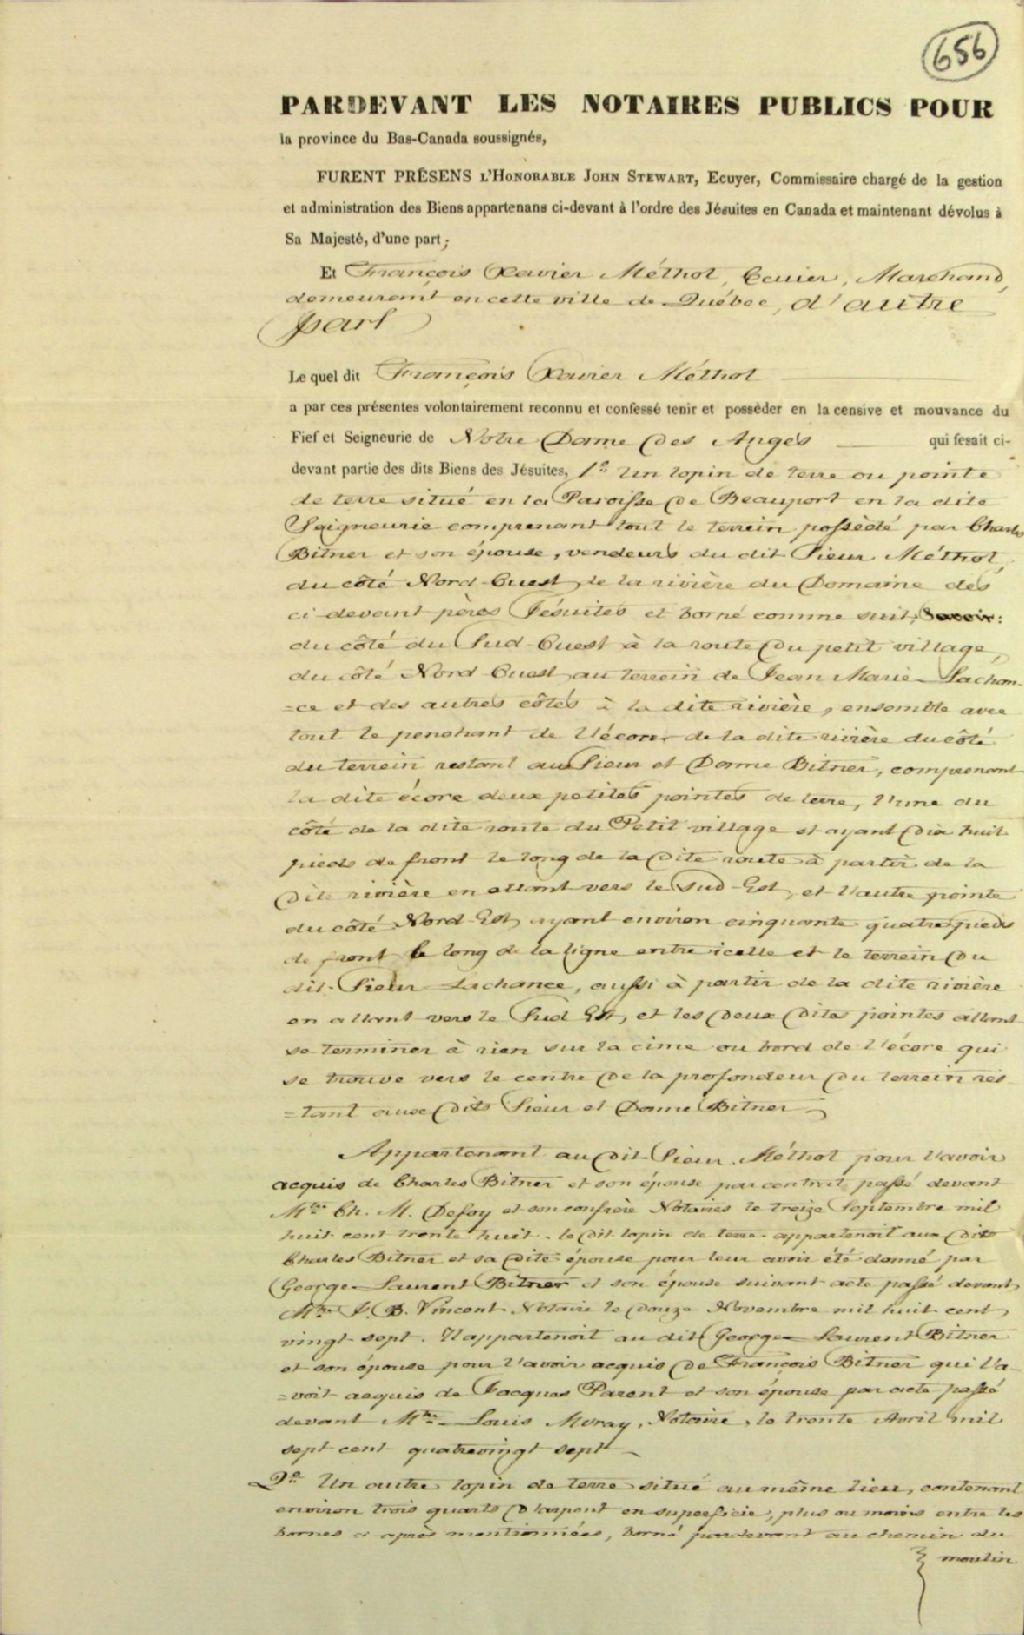 656
PARDEVANT LES NOTAIRES PUBLICS POUR
la province du Bas-Canada soussignés,
FURENT PRÉSENS L'HONORABLE JOHN STEWART, Ecuyer, Commissaire chargé de la gestion
et administration des Biens appartenans ci-devant à l'ordre des Jésuites en Canada et maintenant dévolus à
Sa Majesté, d'une part;
Et François Xavier Méthot, Ecuier, Marchand,
demeurant en cette ville de Québec, d'autre
part
Le quel dit François Xavier Méthot
a par ces présentes volontairement reconnu et confessé tenir et possèder en la censive et mouvance du
Fief et Seigneurie de Notre Dame des Anges qui fesait ci-
devant partie des dits Biens des Jésuites, 1° Un lopin de terre ou pointe
de terre situé en la Paroisse de Beauport en la dite
Seigneurie comprenant tout le terrein possédé par Charles
Bitner et son épouse, vendeurs du dit Sieur Méthot,
du côté Nord Ouest de la rivière du Domaine des
ci-devant pères Jésuites et borné comme suit, Savoir:
du côté du Sud Ouest à la route du petit village,
du côté Nord Ouest au terrein de Jean Marie Lachan-
=ce et des autres côtés à la dite rivière, ensemble avec
tout le penchant de l'écore de la dite rivière du côté
du terrein restant aux Sieur et Dame Bitner, comprenant
la dite écore deux petites pointes de terre, l'une du
côté de la dite route du Petit village et ayant dix huit
pieds de front le long de la dite route à partir de la
dite rivière en allant vers le Sud-Est, et l'autre pointe
du côté Nord-Est, ayant environ cinquante quatre pieds
de front le long de la ligne entre icelle et le terrein du
dit Sieur Lachance, aussi à partir de la dite rivière
en allant vers le Sud Est, et les deux dites pointes allant
se terminer à rien sur la cime ou bord de l'écore qui
se trouve vers le centre de la profondeur du terrein res-
=tant aux dits Sieur et Dame Bitner
Appartenant au dit Sieur Méthot pour l'avoir
acquis de Charles Bitner et son épouse par contrat passé devant
Mtre Ch. M. Defoy et son confrère Notaires le treize Septembre mil
huit cent trente huit. le dit lopin de terre appartenoit aux dits
Charles Bitner et sa dite épouse pour leur avoir été donné par
George Laurent Bitner et son épouse suivant acte passé devant
Mtre J. B. Vincent Notaire le douze Novembre mil huit cent
vingt sept. Il appartenoit au dit George Laurent Bitner
et son épouse pour l'avoir acquis de François Bitner qui l'a-
=voit acquis de Jacques Parent et son épouse par acte passé
devant Mtre Louis Miray, Notaire, le trente Avril mil
sept cent quatrevingt sept
2° Un autre lopin de terre situé au même lieu, contenant
environ trois quarts d'arpent en superficie, plus ou moins entre les
bornes ci après mentionnées, borné pardevant au chemin du
moulin